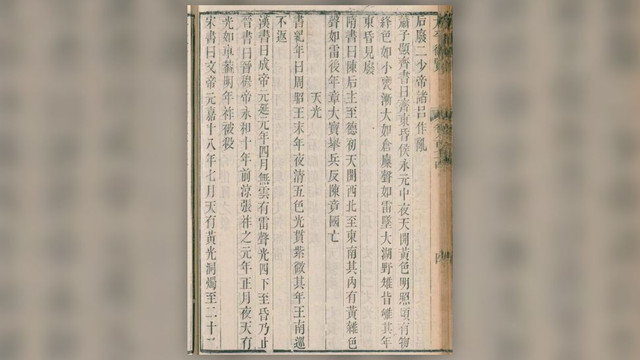 后廢二少帝諸呂作亂
蕭子顯齊書曰齊東昏侯永元中夜天開黃色明照須有物
絳色如小甕漸大如倉廩聲如雷墜大湖野雉皆雊其年
東昏見廢
南書曰陳后主至德初天開西北至東南其內有黃雜色
聲如雷後年章大寶舉兵反陳竟國亡
天光
書紀年曰周昭王末年夜清五色光貫紫微其年王南巡
不返
漢書曰成帝元延元年四月無雲有雷聲光四下至昏乃止
晉書曰晉穆帝永和十年前涼張祚之元年正月夜天有
光如車蓋明年祚被殺
宋書曰文帝元嘉十八年七月天有黃光洞燭至二十二